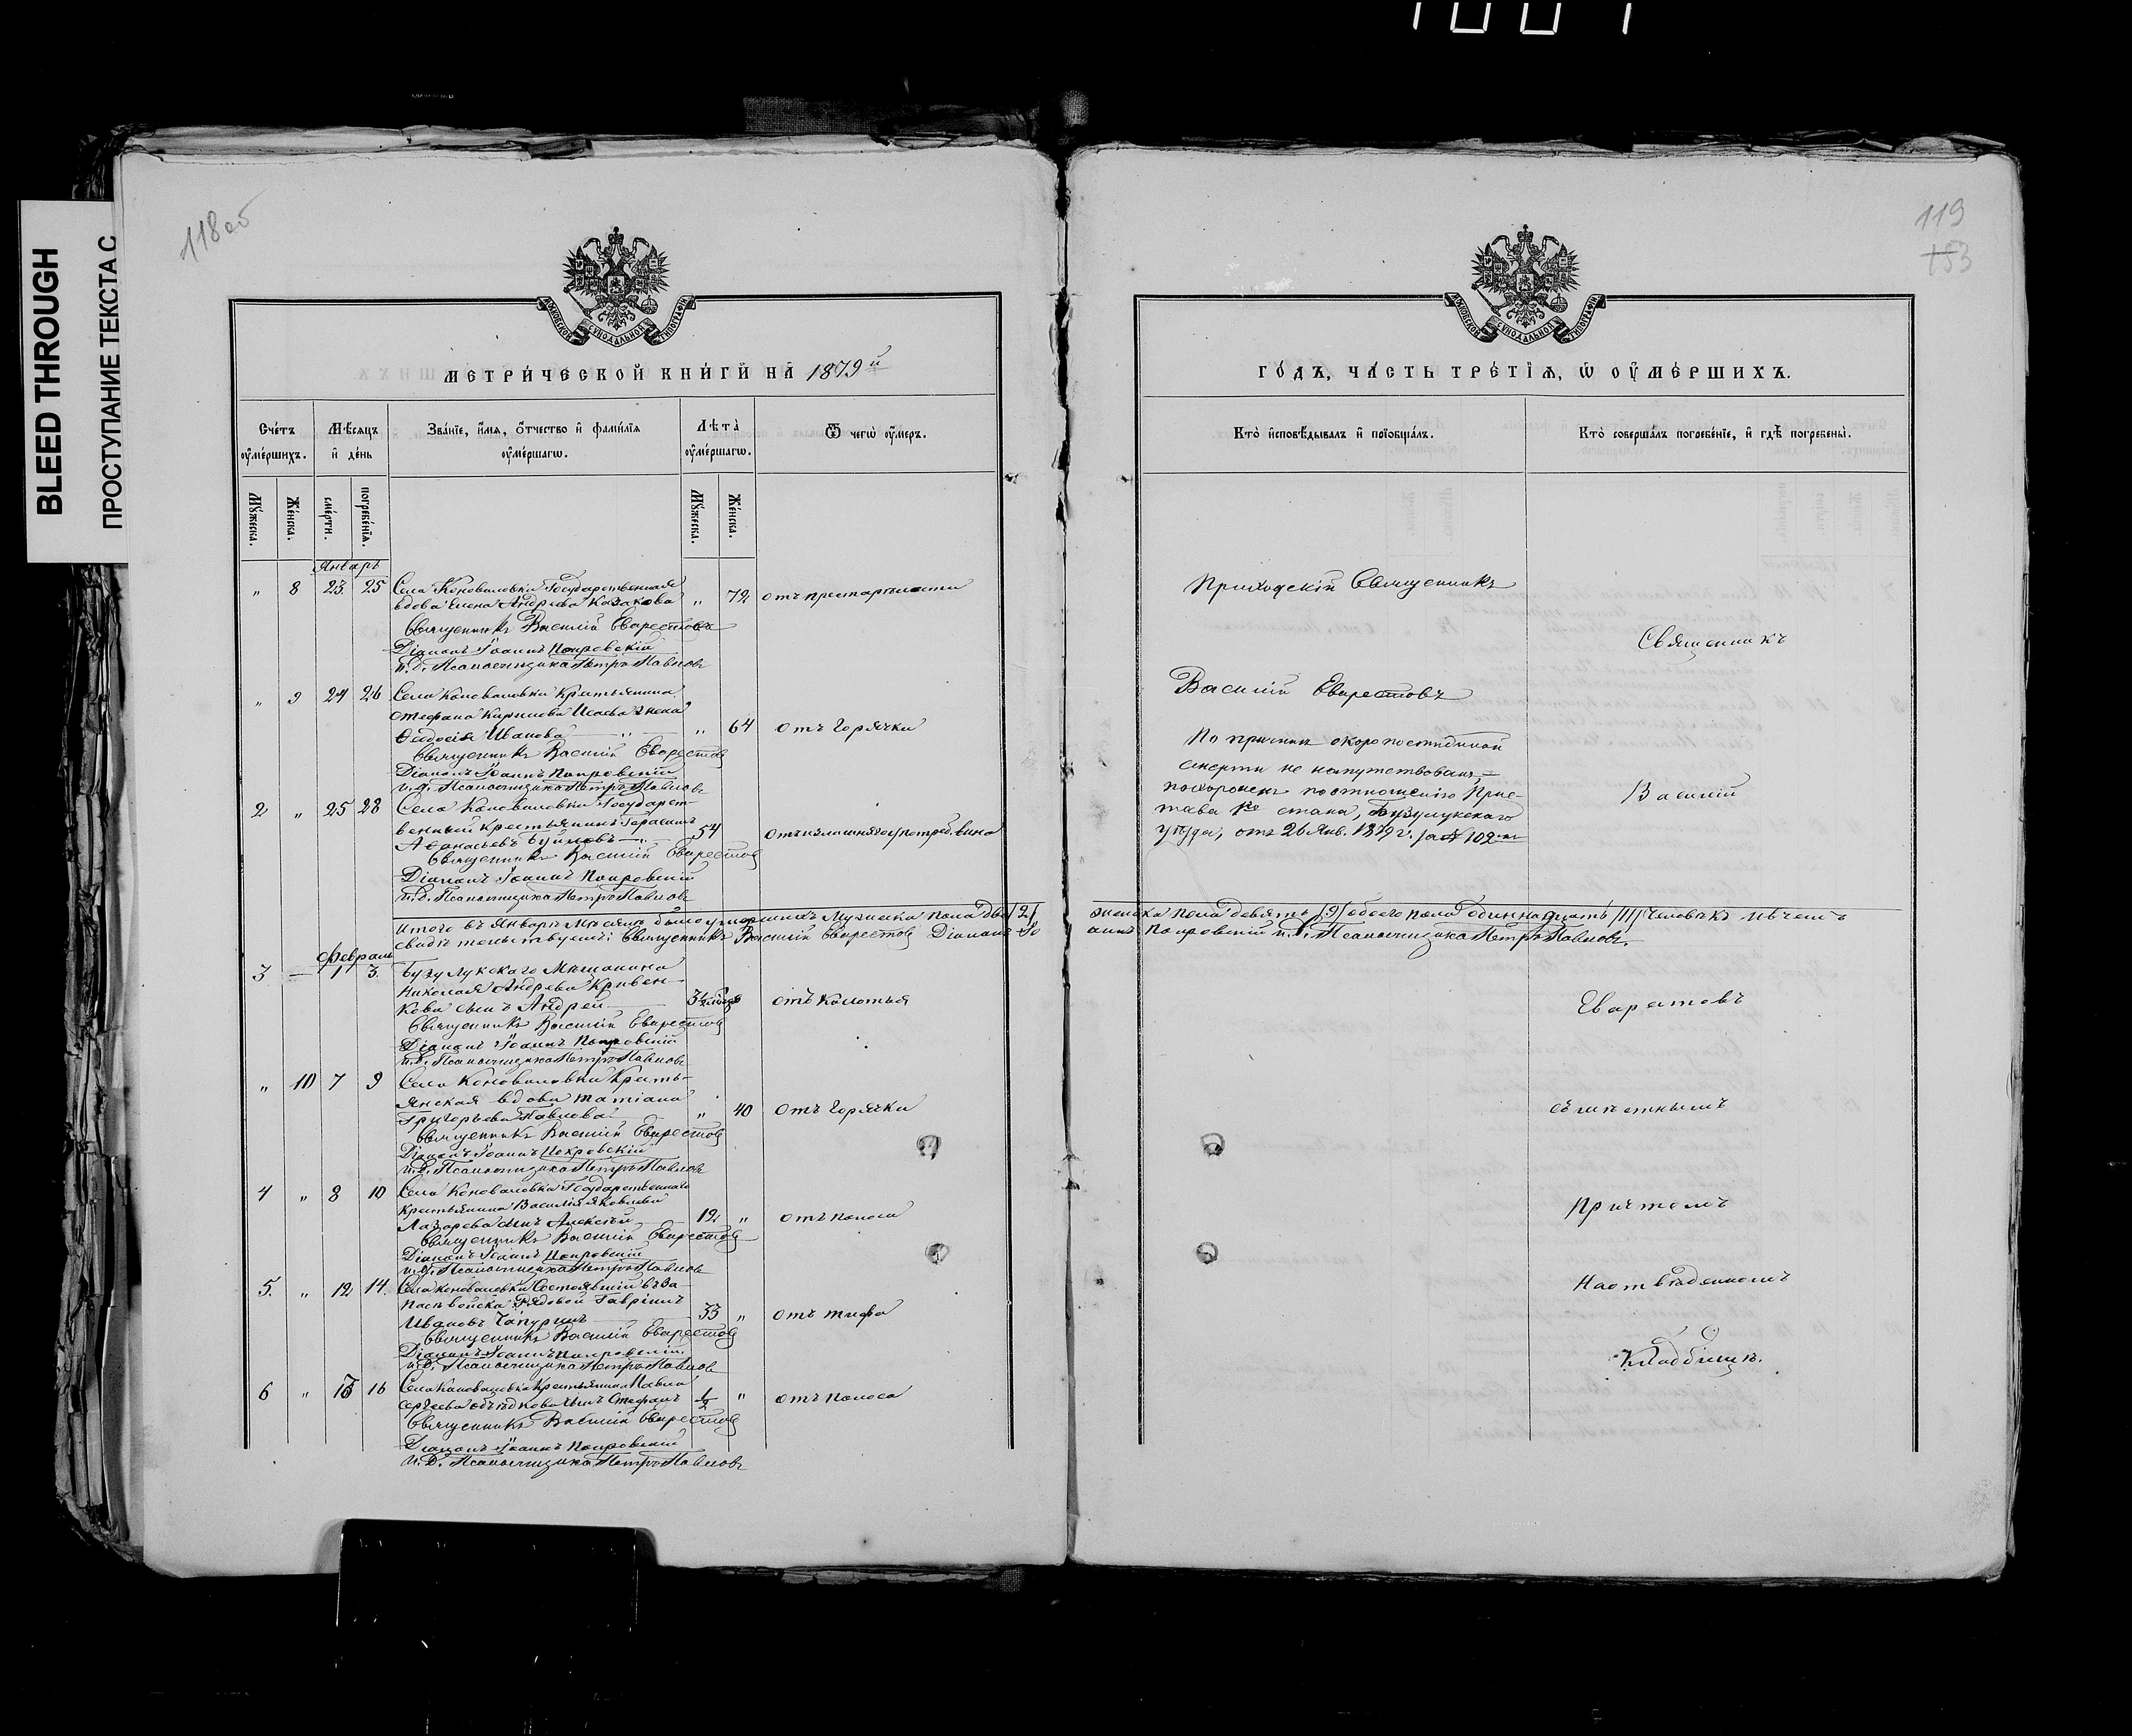 BLEED THROUGH
ПРОСТУПАНИЕ ТЕКСТА С
118 об
МЕТРИЧЕСКОЙ КНИГИ НА 1879й
Счетъ оумершихъ.
Мѣсяцъ и день
Званіе, имя, отчество и фамилія оумершагѡ.
Лѣта оумершагѡ.
Ѿ чегѡ оумеръ.
Мужеска.
Женска.
смерти.
погребенія.
Мужеска.
Женска.
Январь
" 8 23 25 Села Коноваловки Государственная
вдова Елена Андреева Казакова " 72 отъ престарѣлости
Священникъ Василій Еварестовъ
Діаконъ Іоаннъ Покровскій
и.д. Псаломщика Петръ Павловъ
" 9 24 26 Села Коноваловки Крестьянина
Стефана Кирилова Исаева жена
Ѳеодосія Иванова " 64 отъ Горячки
Священникъ Василій Еварестовъ
Діаконъ Іоаннъ Покровскій
и.д. Псаломщика Петръ Павловъ
2 " 25 28 Села Коноваловки Государст-
венный крестьянинъ Герасимъ
Аѳанасьевъ 54 отъ излишняго употреб. вина
Священникъ Василій Еварестовъ
Діаконъ Іоаннъ Покровскій
и.д. Псаломщика Петръ Павловъ
Итого въ Январѣ Мѣсяцѣ было умершихъ Мужеска пола два /2/
свидѣтельствуемъ: Священникъ Василій Еварестовъ Діаконъ Іо
Февраль
3 — 1 3. Бузулукскаго Мѣщанина
Николая Андреева Кривен-
кова сынъ Андрей отъ Колотья
Священникъ Василій Еварестовъ
Діаконъ Іоаннъ Покровскій
и.д. Псаломщика Петръ Павловъ
" 10 7 9 Села Коноваловки Кресть-
янская вдова Татіана
Григорьева Павлова " 40 отъ Горячки
Священникъ Василій Еварестовъ
Діаконъ Іоаннъ Покровскій
и.д. Псаломщика Петръ Павловъ
4 " 8 10 Села Коноваловки Государственнаго
крестьянина Василія Яковлева
Лазарева сынъ Алексѣй 12 " отъ поноса
Священникъ Василій Еварестовъ
Діаконъ Іоаннъ Покровскій
и.д. Псаломщика Петръ Павловъ
5. " 12 14. Села Коноваловки Состоявшій въ За-
пасѣ войска Рядовой Гавріилъ
Ивановъ Чапуринъ 33 " отъ тифа
Священникъ Василій Еварестовъ
Діаконъ Іоаннъ Покровскій
и.д. Псаломщика Петръ Павловъ
6 " 13 16 Села Коноваловки Крестьянина Павла
Сергеева сынъ Стефанъ 1/2 " отъ поноса
Священникъ Василій Еварестовъ
Діаконъ Іоаннъ Покровскій
и.д. Псаломщика Петръ Павловъ
119
153
ГОДЪ, ЧАСТЬ ТРЕТІЯ, Ѡ ОУМЕРШИХЪ.
Кто исповѣдывалъ и пріобщалъ.
Кто совершалъ погребеніе, и гдѣ погребены.
Приходскій Священникъ
Священникъ
Василій Еварестовъ
По причинѣ скоропостижной
смерти не напутствованъ,—
похороненъ по отношенію Прис-
тава 1го стана, Бузулукскаго
уѣзда, отъ 26 Янв. 1879 г. за № 102мъ
Василій
женска пола девять /9/ обоего пола одиннадцать /11/ человѣкъ въ чемъ
аннъ Покровскій и.д. Псаломщика Петръ Павловъ.
Еварестовъ
съ
Причтомъ
На отведенномъ
Кладбищѣ.